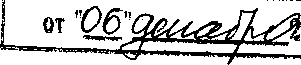 от "06" декабря